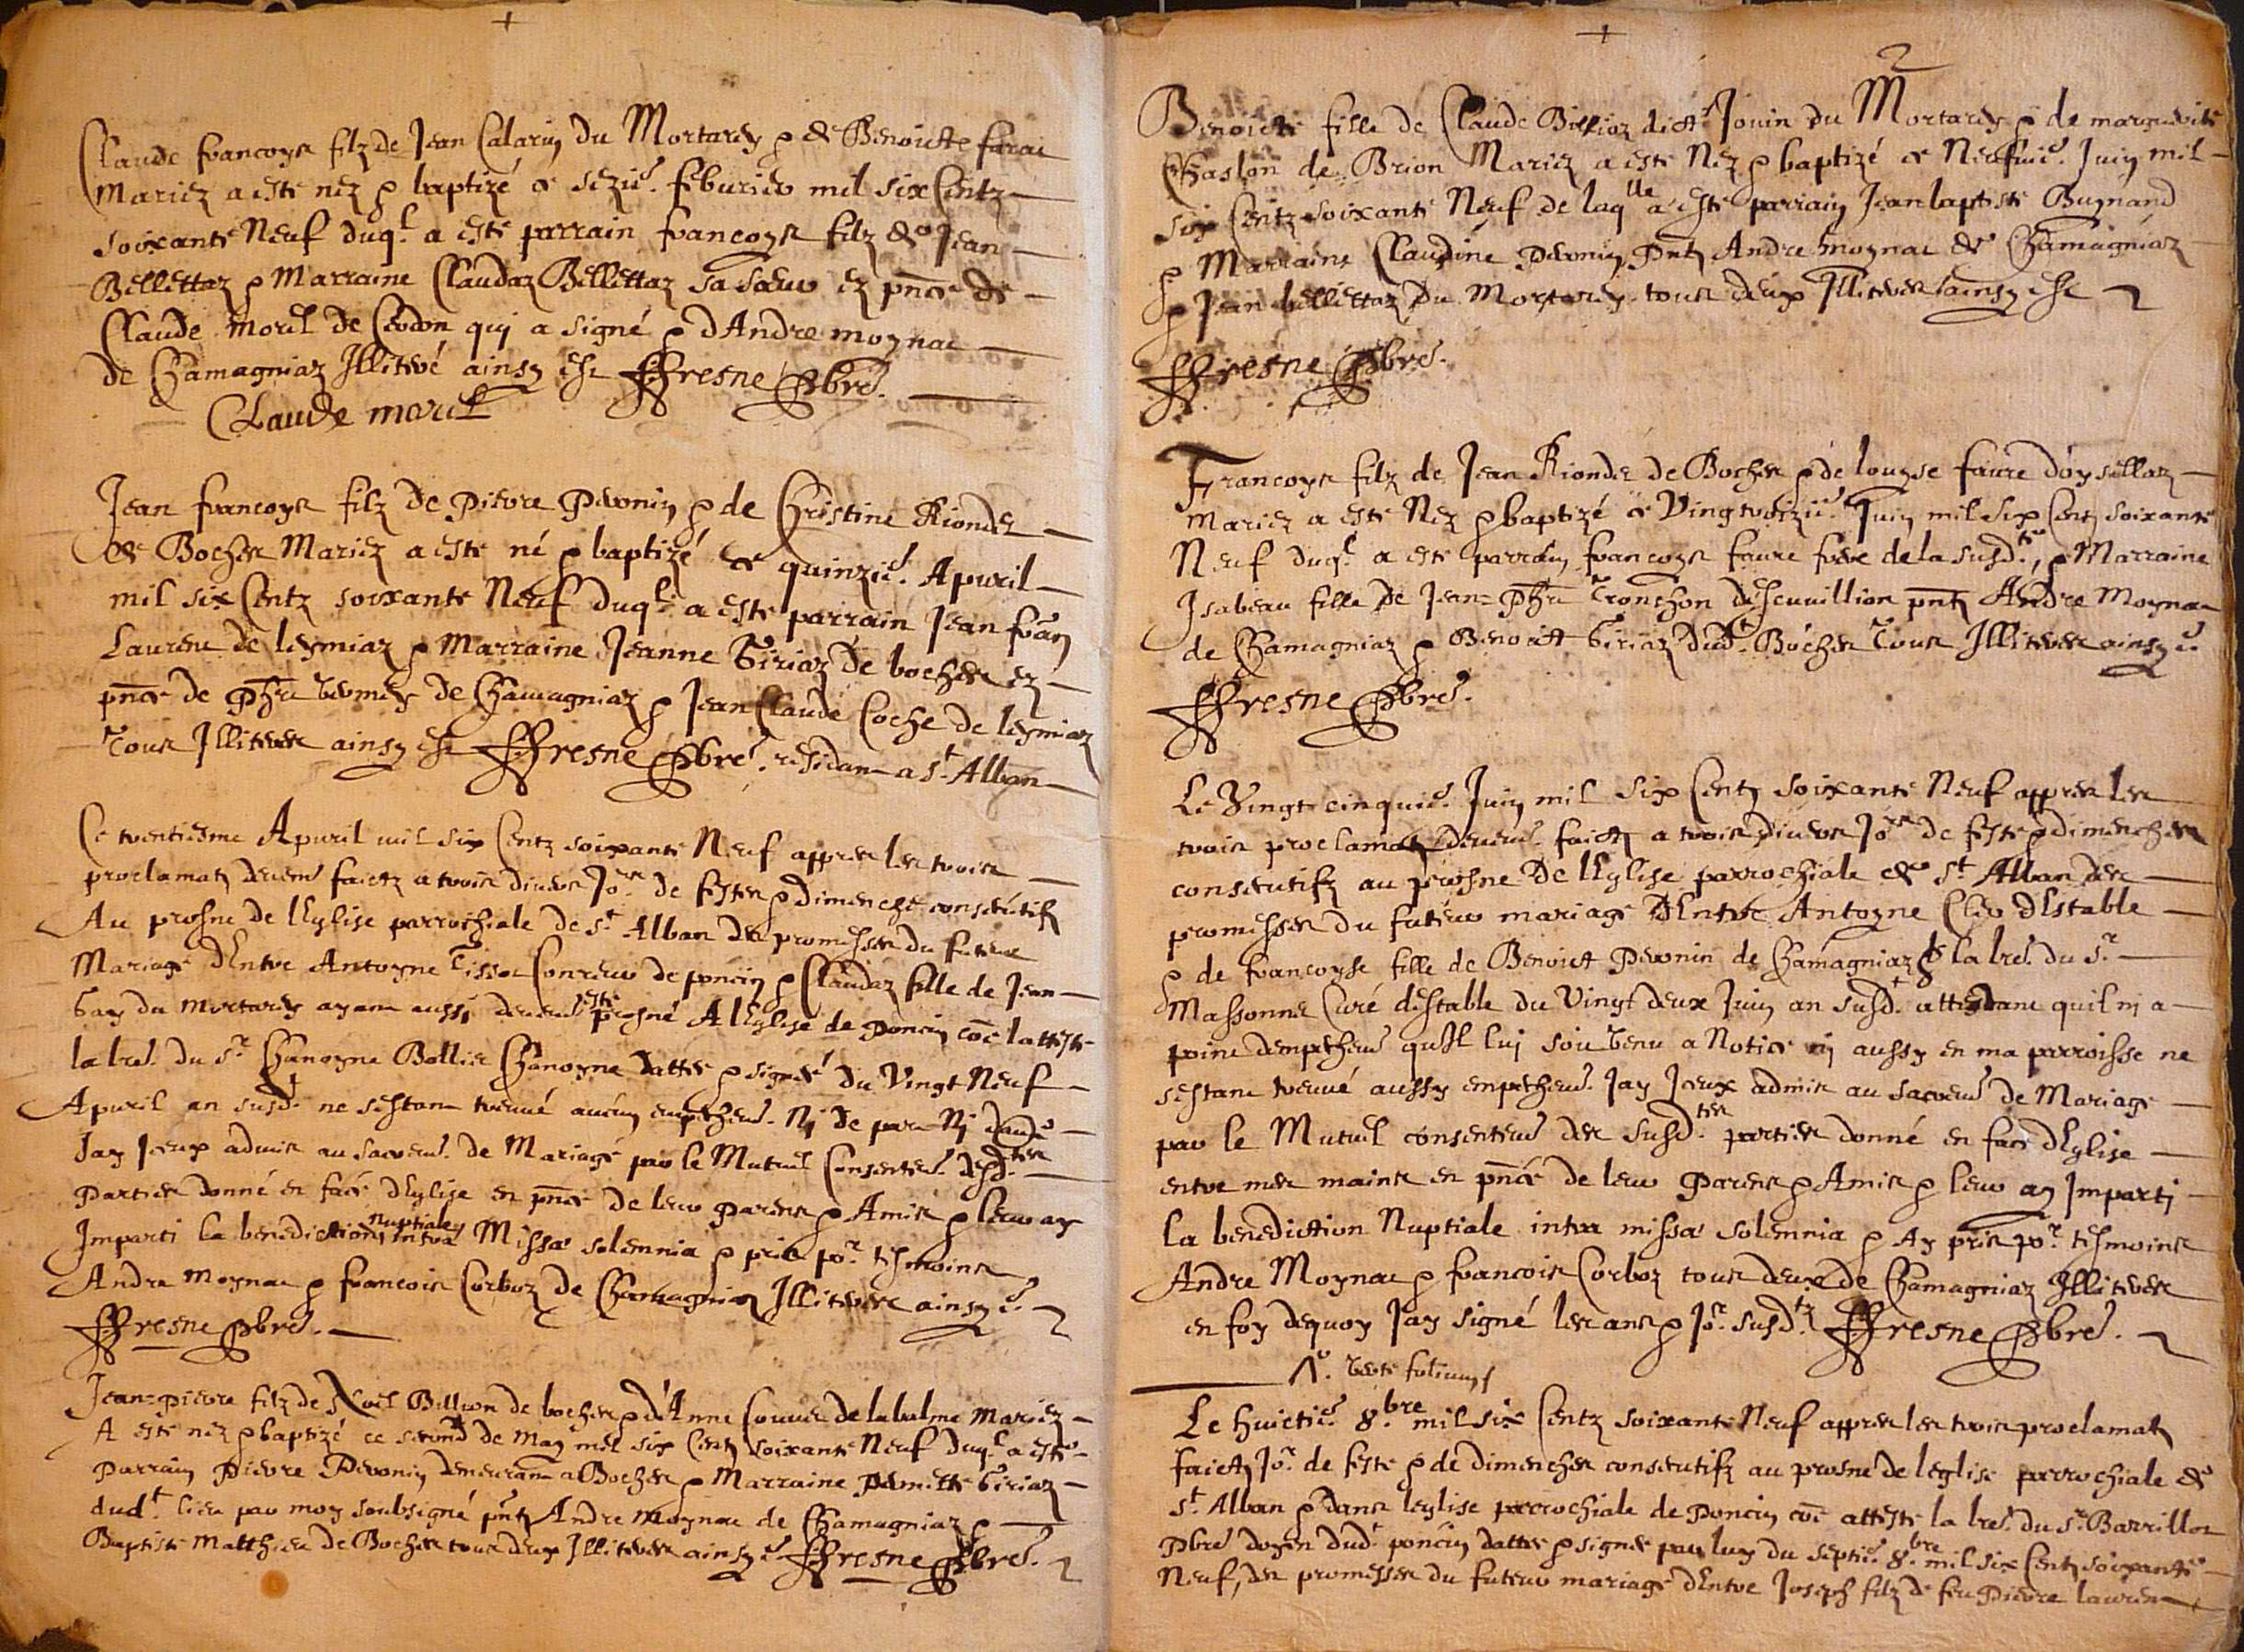 Claude francoys filz de Jean Calarin du Mortarey & de Benoicte farai
Mariez a esté nez & baptizé ce seziē. feburier mil six Centz
soixante Neuf duql. a esté parrain francoys filz de Jean
Bellettaz & Marraine Claudaz Bellettaz sa sœur ez pn̄ce de
Claude morel de Cerdon qui a signé & d'Andre moynac
de Chamagniaz Illiteré ainsy est ffresne pbre.
Claude morel
Jean francoys filz de Pierre Peronin & de Christine Riondez
de Boches Mariez a esté né & baptizé ce quinziē. Apuril
mil six Centz soixante Neuf duql. a esté parrain Jean fran
Laurent de leymiaz & Marraine Jeanne Giriaz de boches ez
pn̄ce de de Chamagniaz & Jean Claude Coche de leymiaz
Tous Illiteres ainsy est ffresne pbre. residant a St. Alban
Ce trentiesme Apuril mil six Centz soixante Neuf appres les trois
proclamatz deuemt faictz a trois diuers Jors. de festes & dimenche consecutifz
Au prosne de lEglise parrochiale de St. Alban des promesses du futeur
Mariage dEntre Antoyne Tissot de poncin & Claudaz fille de Jean
Gay du mortarey ayant aussi deuemt esté prosné A lEglise de poncin cōe latteste
la lre. du Sr. Chanoyne Bollie Chanoyne dattée & signée du Vingt Neuf
Apuril an susdt. ne sestant treuué aucun empechemt. Nj de part Nj daude
Jay Jceux admis au sacremt. de Mariage par le Mutuel Consentemt. desdtes
Parties donné en face dEglise en pn̄ce de leur Parens & Amis & leur ay
Imparti la benediction nuptiale intra Missæ solemnia & pris por. tesmoins
Andre moynac & francois Corboz de Chamagniaz Illiteres ainsy ē.
ffresne pbre.
Jean=Pierre filz de Noel Billion de boches & d'Anne Couuet de la balme Mariez
A esté nez & baptizé ce second de May mil six Centz soixante Neuf duql. a esté
Parrain Pierre Peronin demeurant a Boches & Marraine Pernette Giriaz
dudt. lieu par moy soubsigné pn̄tz Andre Moynac de Chamagniaz &
Baptiste Matthieu de Boches tous deux Illiteres ainsy ē. ffresne pbre.
2
Benoicte fille de Claude Billioz dict Jouin du Mortarey & de marguerite
Chaslon de Brion Mariez a esté Nez & baptizé ce Neufuiē. Juin mil
six Centz soixante Neuf de laqlle a esté parrain Jean baptiste Bugnand
& Marraine Claudine Peronin Pntz Andre moynac de Chamagniaz
& Jean bellettaz du Mortarey tous deux Illiteres ainsy est
ffresne pbre.
Francoys filz de Jean Riondez de Boches & de louyse faure d'oysellaz
Mariez a esté Nez & baptizé ce Vingt troiziē. Juin mil six Centz soixante
Neuf duql. a esté parrain francoys faure frere de la susdte., & Marraine
Isabeau fille de Jean= Tronchon pntz Andre Moynac
de Chamagniaz & Benoict Giriaz dudt. Boches Tous Illiteres ainsy ē.
ffresne pbre.
Le Vingt cinquiē. Juin mil six Centz soixante Neuf appres les
trois proclamatz deuemt. faictz a trois diuers Jors de feste & dimenches
consecutifz au prosne de lEglise parrochiale de St. Alban des
promesses du futeur mariage dEntre Antoyne Cler dEstable
& de francoyse fille de Benoict Peronin de Chamagniaz la lre. du Sr.
Massonnet Curé destable du Vingt deux Juin an susdt. attestant quil nj a
poinct dempechemt qu'Il luj soit venu a Notice nj aussy en ma parroisse ne
sestant treuué aussy empechemt. Jay Jceux admis au sacremt de Mariage
par le Mutuel consentemt des susdtes parties donné en face dEglise
entre mes mains en pn̄ce de leur Parens & Amis & leur ay Imparti
la benediction Nuptiale intra missæ solemnia & Ay pris por. tesmoins
Andre Moynac & francois Corboz tous deux de Chamagniaz Illiteres
en foy dequoy Jay signé les ans & Jor. susdtz ffresne pbre.
verte folium
Le huictiē 8.bre mil six Centz soixante Neuf appres les trois proclamatz
faictz Jor. de feste & de dimenches consecutifz au prosne de leglise parrochiale de
St. Alban & dans leglise parrochiale de Poncin cōe atteste la lre. du Sr. Barrillot
Pbre doyen dudt. poncin dattée & signée par luy du septiē. 8.bre mil six Centz soixante
Neuf, des promesses du futeur mariage dEntre Joseph filz de feu Pierre laurent